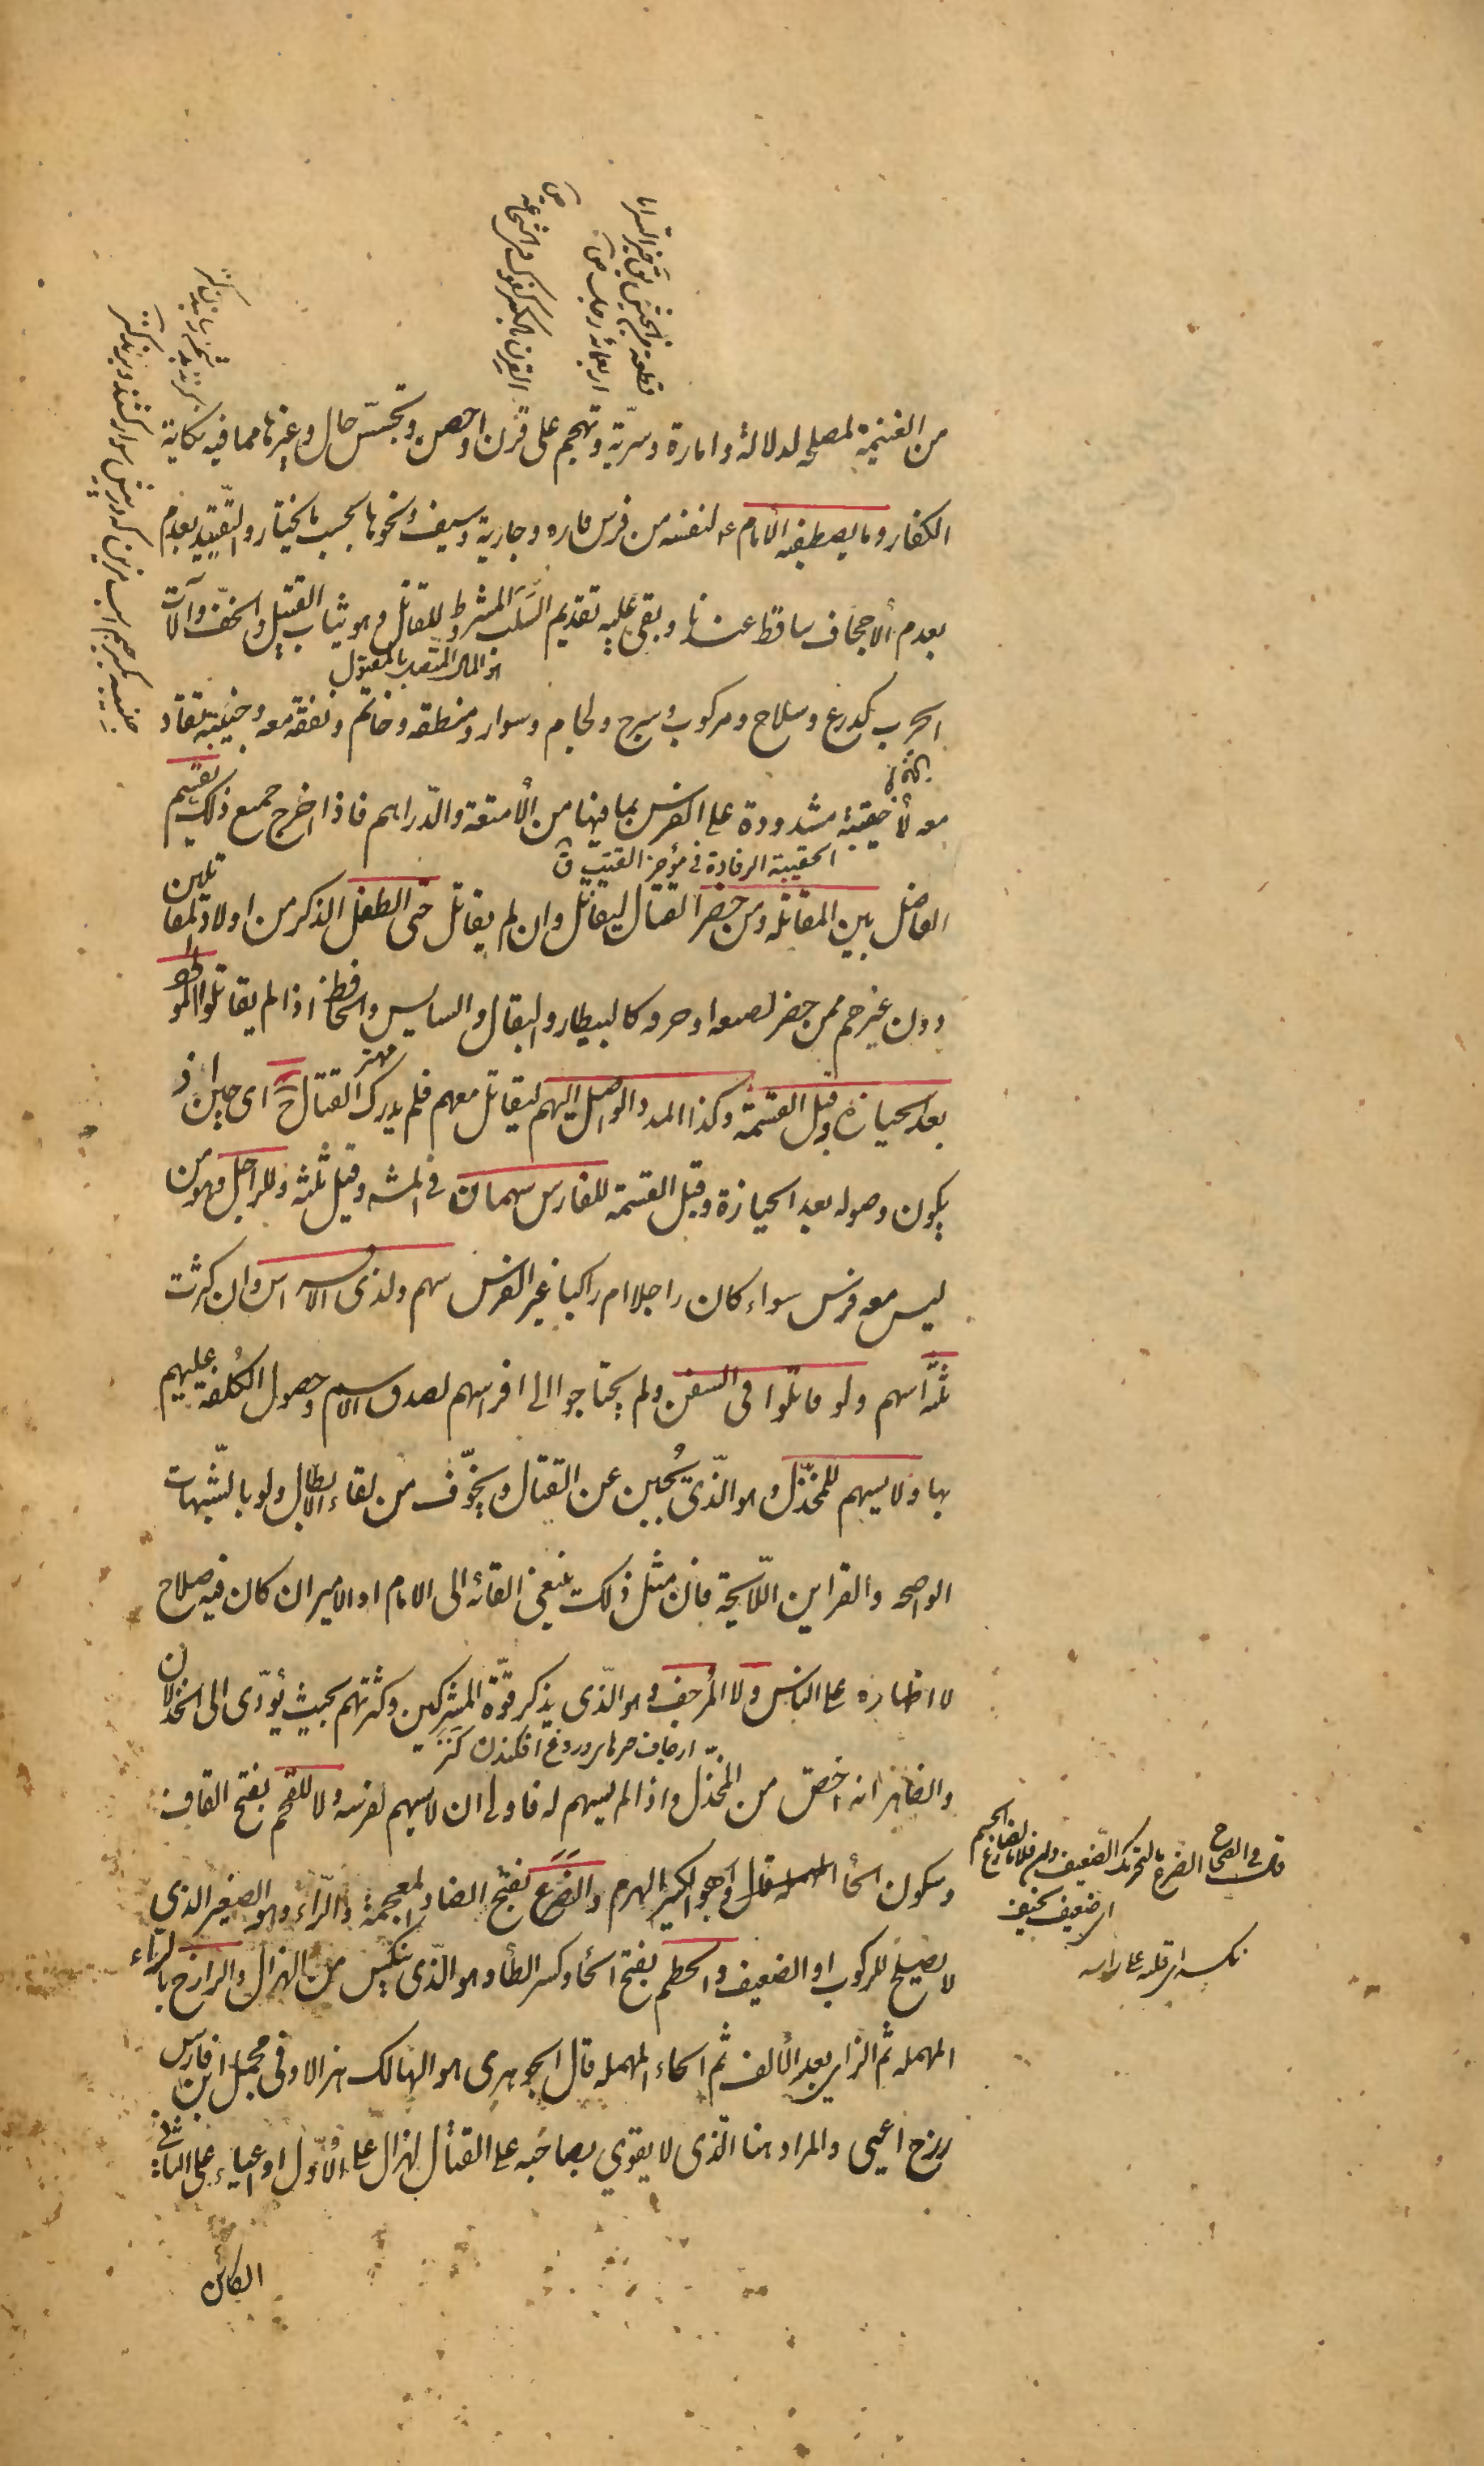 من الغنيمة لمصلحه لدلالة وامارة وسرّية وتهجم على قرن او حصن وتجسّس حال وغيرها مما فيه نكاية
الكفار وما يصطفيه الامام ع لنفسه من فرس فاره وجارية وسيف ونحوها بحسب ما يختار والتقييد بعدم
بعدم الاجحاف ساقط عندنا وبقى عليه تقديم السَّلَب المشروط للقاتل وهو ثياب القتيل والخفّ وآلات
هو المال المتصل بالمقتول
الحرب كدرع وسلاح ومركوب وسرج ولجام وسوار ومنطقه وخاتم ونفقة معه وجنيبة تقاد
معه لا حقيبة مشدودة على الفرس بما فيها من الأمتعة والدّراهم فاذا اخرج جميع ذلك يقسّم
الحقيبة الرفادة في مؤخر القتب ق
الفاضل بين المقاتله ومن حضر القتال ليقاتل وان لم يقاتل حتى الطفل الذكر من اولاد المقاتلين
دون غيرهم ممن حضر لصنعة او حرفه كالبيطار والبقال والسايس والحافظ اذا لم يقاتلوا المولود
بعد الحيازة وقبل القسمة وكذا المدد الواصل اليهم ليقاتل معهم فلم يدرك القتال ح اى حين اذ
يكون وصوله بعد الحيازة وقبل القسمة للفارس سهمان في المشه وقيل ثلثه وللراجل وهو من
ليس معه فرس سواء كان راجلا ام راكبا غير الفرس سهم ولذى الافراس وان كثرت
ثلثة اسهم ولو قاتلوا فى السفن ولم يحتاجوا الى افراسهم لصدق الاسم وحصول الكُلفة عليهم
بها ولا يسهم للمخذّل وهو الّذى يُجبن عن القتال ويخوّف من لقاء الابطال ولو بالشّبهات
الواضحه والقراين اللّايحة فان مثل ذلك ينبغي القائه الى الامام او الامير ان كان فيه صلاح
لا اظهاره على الناس ولا المرجف وهو الّذى يذكر قوّة المشركين وكثرتهم بحيث يؤدّى الى الخذلان
ارجاف خبرهاى دروغ افكندن كنز
والظاهر انه اخصّ من المخذّل واذا لم يسهم له فاولى ان لا يسهم لفرسه ولا للقحم بفتح القاف
وسكون الحاء المهمله وهو الكبير الهرم والضَرَع بفتح الضاد المعجمة والرّاء وهو الصغير الذي
لا يصلح للركوب او الضعيف والحطم بفتح الحاء وكسر الطاء وهو الّذى ينكس من الهزال والرازح بالراء
المهمله ثم الزاى بعد الألف ثم الحاء المهمله قال الجوهرى هو الهالك هزالا وفى مجمل ابن فارس
رزح اعيى والمراد هنا الّذى لا يقوي بصاحبه على القتال لهزال على الاوّل او اعياء على الثانى
الكائن
قال في الصحاح الضرع بالتحريك الضعيف وان فلانا لضارع الجسم
اى ضعيف نحيف
نكسه اى قلبه على راسه